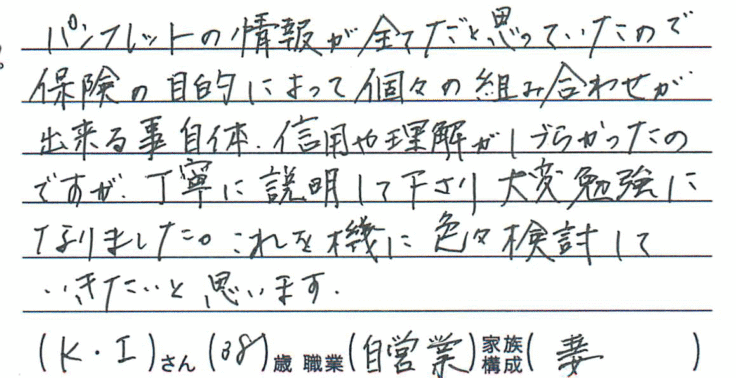 パンフレットの情報が全てだと思っていたので
保険の目的によって個々の組み合わせが
出来る事自体、信用や理解がしづらかったの
ですが、丁寧に説明して下さり大変勉強に
なりました。これを機に色々検討して
いきたいと思います。
(K・I)さん(38)歳 職業(自営業)家族構成(妻)